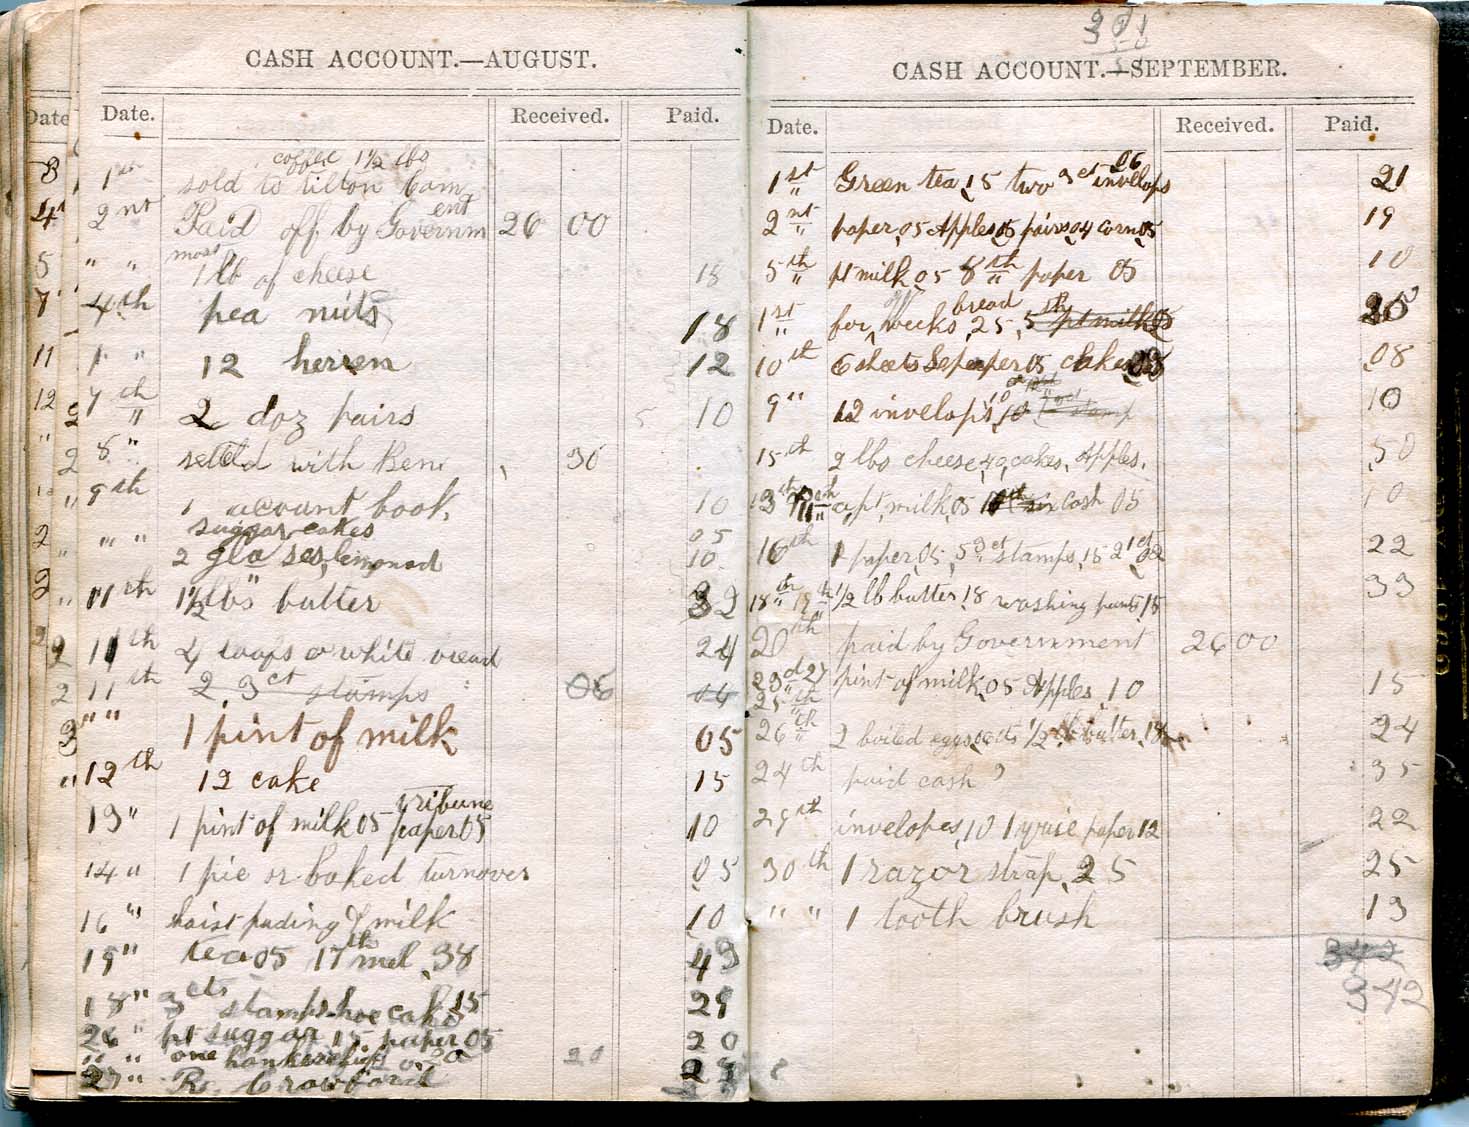 CASH ACCOUNT.—AUGUST.
Date. Received. Paid.
coffee 1 1/2 lbs
1st sold to tilton Com
2nt Paid off by Government 26 00
most
" " 1 lb of cheese 18
4th pea nuts 18
" " 12 herren 12
7th 2 doz pairs 10
8 " settld with Benj 30
9th 1 account book, 10
" " suggar cakes 05
2 glases, lemonad 10
11th 1 1/2 lbs" butter
11th 4 loafs o white bread 24
11th 2 3ct stamps 06
" " 1 pint of milk 05
12th 12 cake 15
tribune
13" 1 pint of milk 05 paper 05 10
14 " 1 pie or baked turnover 05
16 " haist puding & milk 10
19" tea 05 17th mel 38 43
18" 3cts stamps hoe cake 15
26 " pt suggar 15 paper 05 20
" " one hankerchief 20
27" R. Crawford
301
CASH ACCOUNT.—SEPTEMBER.
Date. Received. Paid.
1st Green tea, 15 two 3ct invelops 06 21
2nt paper, 05 Apples 05 pairs 04 corn 05 19
5th pt milk, 05 8th paper 05 10
1st for weeks bread, 25, 5th pt milk 05
10th 6 sheets 05 cakes 08
9" 12 invelops 10 stamp 10
15th 2 lbs cheese, 40, cakes, Apples, 50
pt, milk, 05 cash 05 10
16th 1 paper, 05, 5 3ct stamps, 15 2 1ct 02 22
18th 19th 1/2 lb butter, 18 washing pants, 15 33
20th paid by Government 26 00
23d 27 pint of milk, 05 Apples, 10 15
25th
26th 2 boiled eggs 1/2 lb butter, 18 24
24th paid cash 35
29th invelopes, 10 1 quire paper 12 22
30th 1 razor strap, 25 25
" " 1 tooth brush 13
342
342